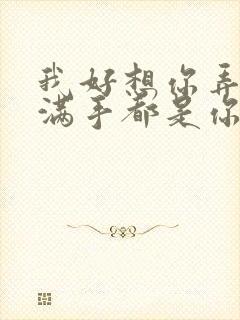 我好想你弄
满手都是你